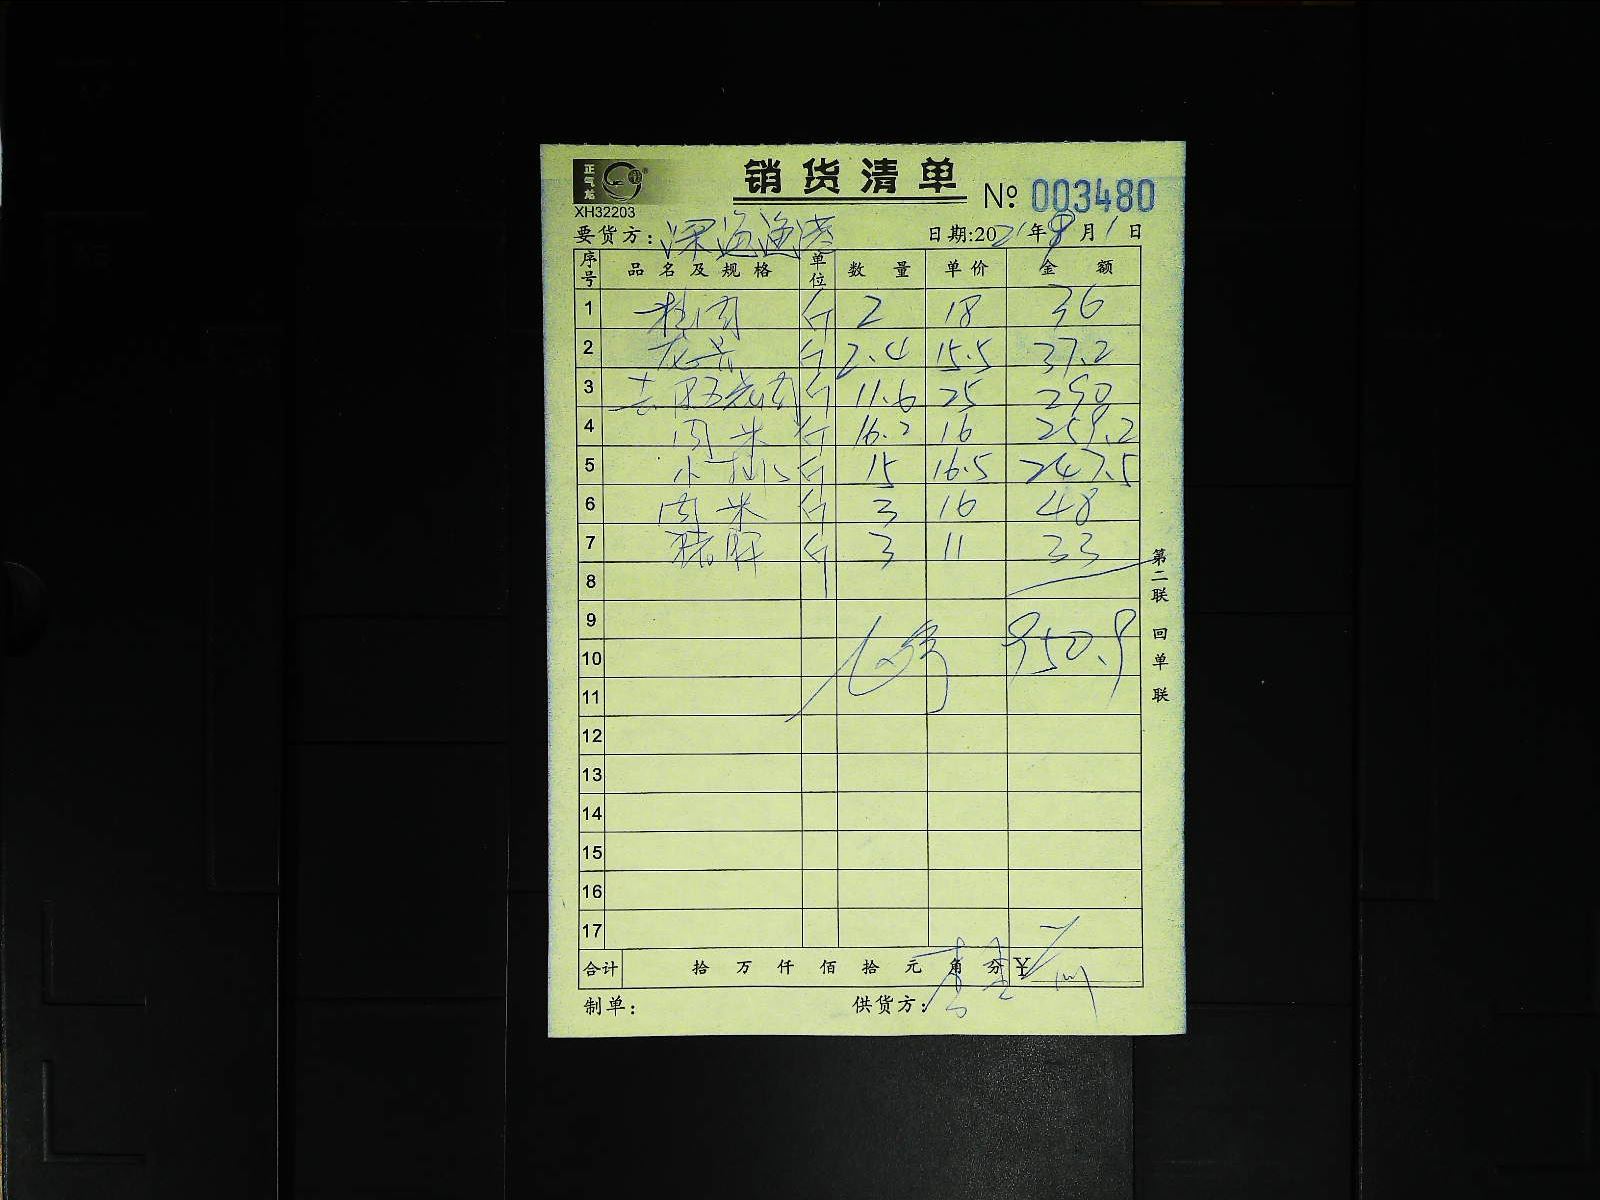 正气龙
销货清单
XH32203
№ 003480
要货方: 深海渔港 日期:2021年9月1日
序号 品名及规格 单位 数量 单价 金额
1 肉 斤 2 18 36
2 龙骨 斤 2.4 15.5 37.2
3 去皮五花肉 斤 11.6 25 290
4 肉米 斤 16.2 16 259.2
5 小排 斤 15 16.5 247.5
6 肉米 斤 3 16 48
7 猪肝 斤 3 11 33
8
9
950.9
10
11
12
13
14
15
16
17
合计 拾 万 仟 佰 拾 元 角 分 ¥
制单: 供货方:
第二联 回单联